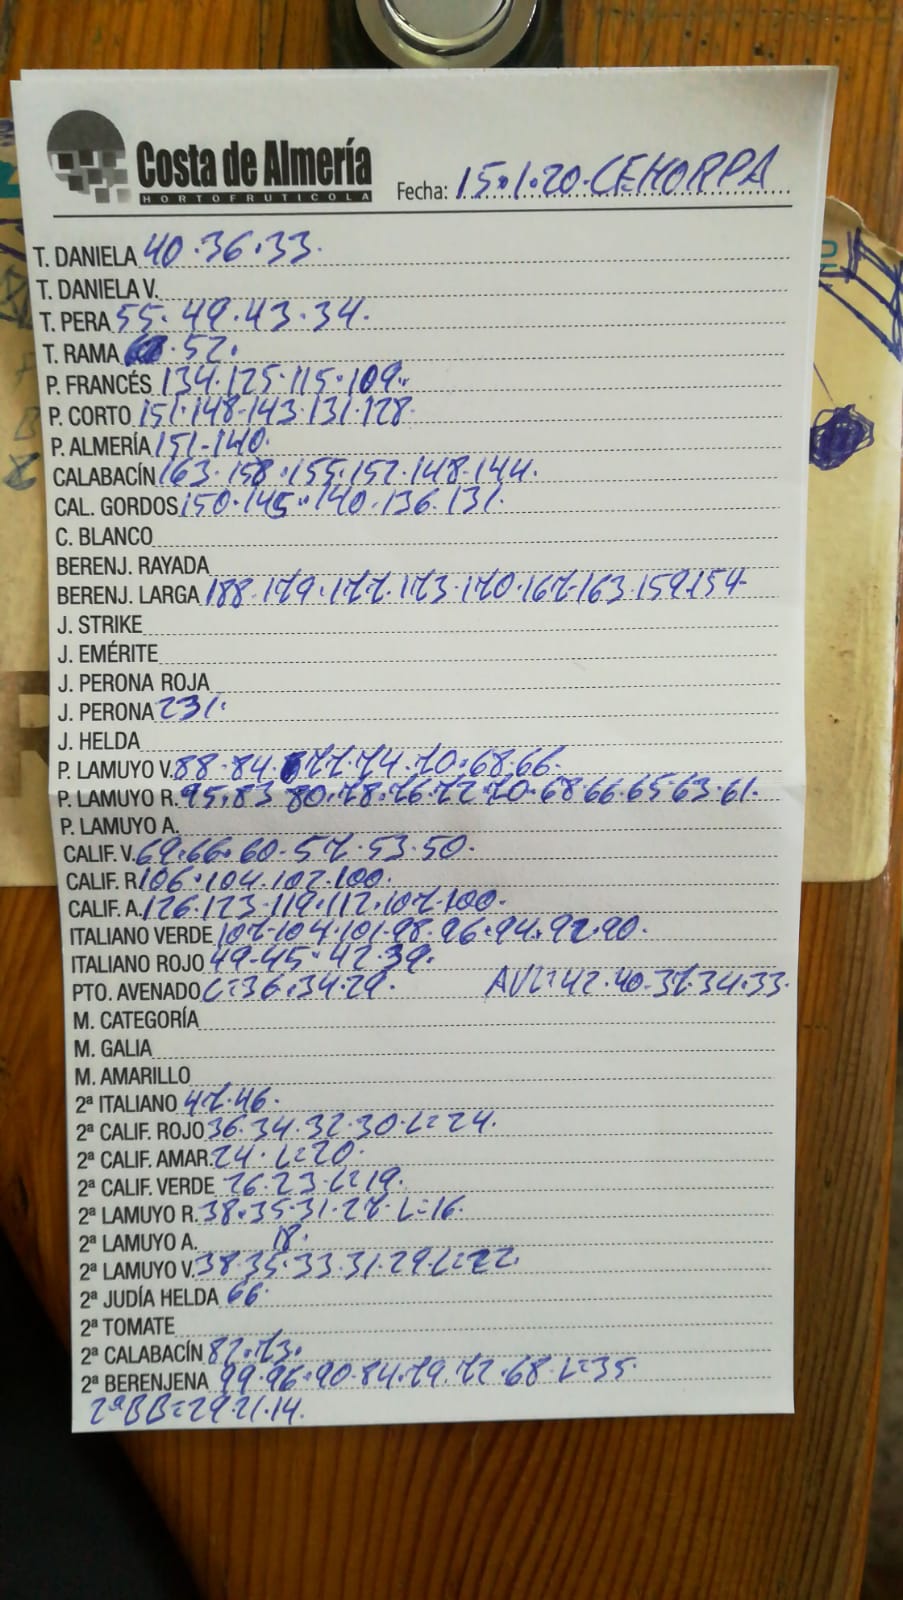 Costa de Almería
HORTOFRUTICOLA
Fecha: 15.1.20.CEHORPA
T. DANIELA 40.36.33.
T. DANIELA V.
T. PERA 55.49.43.34.
T. RAMA 52.
P. FRANCÉS 134.125.115.109.
P. CORTO 151.148.143.131.128.
P. ALMERÍA 151-140.
CALABACÍN 163.158.155.152.148.144.
CAL. GORDOS 150.145.140.136.131.
C. BLANCO
BERENJ. RAYADA
BERENJ. LARGA 188.179.177.173.170.167.163.159.154
J. STRIKE
J. EMÉRITE
J. PERONA ROJA
J. PERONA 231.
J. HELDA
P. LAMUYO V. 88.84.77.74.70.68.66.
P. LAMUYO R. 95.83.80.78.76.72.70.68.66.65.63.61.
P. LAMUYO A.
CALIF. V. 69.66.60.57.53.50.
CALIF. R. 106.104.102.100.
CALIF. A. 126.123.119.112.107.100.
ITALIANO VERDE 107.104.101.98.96.94.92.90.
ITALIANO ROJO 49.45.42.39.
PTO. AVENADO L=36.34.29. AVL=42.40.37.34.33.
M. CATEGORÍA
M. GALIA
M. AMARILLO
2ª ITALIANO 47.46.
2ª CALIF. ROJO 36.34.32.30.L=24.
2ª CALIF. AMAR. 24. L=20.
2ª CALIF. VERDE 26.23.L=19.
2ª LAMUYO R. 38.35.31.27.L=16.
2ª LAMUYO A. 18.
2ª LAMUYO V. 38.35.33.31.29.L=22.
2ª JUDÍA HELDA 66.
2ª TOMATE
2ª CALABACÍN 82.73.
2ª BERENJENA 99.96.90.84.79.72.68.L=35
2ªBB=29.21.14.